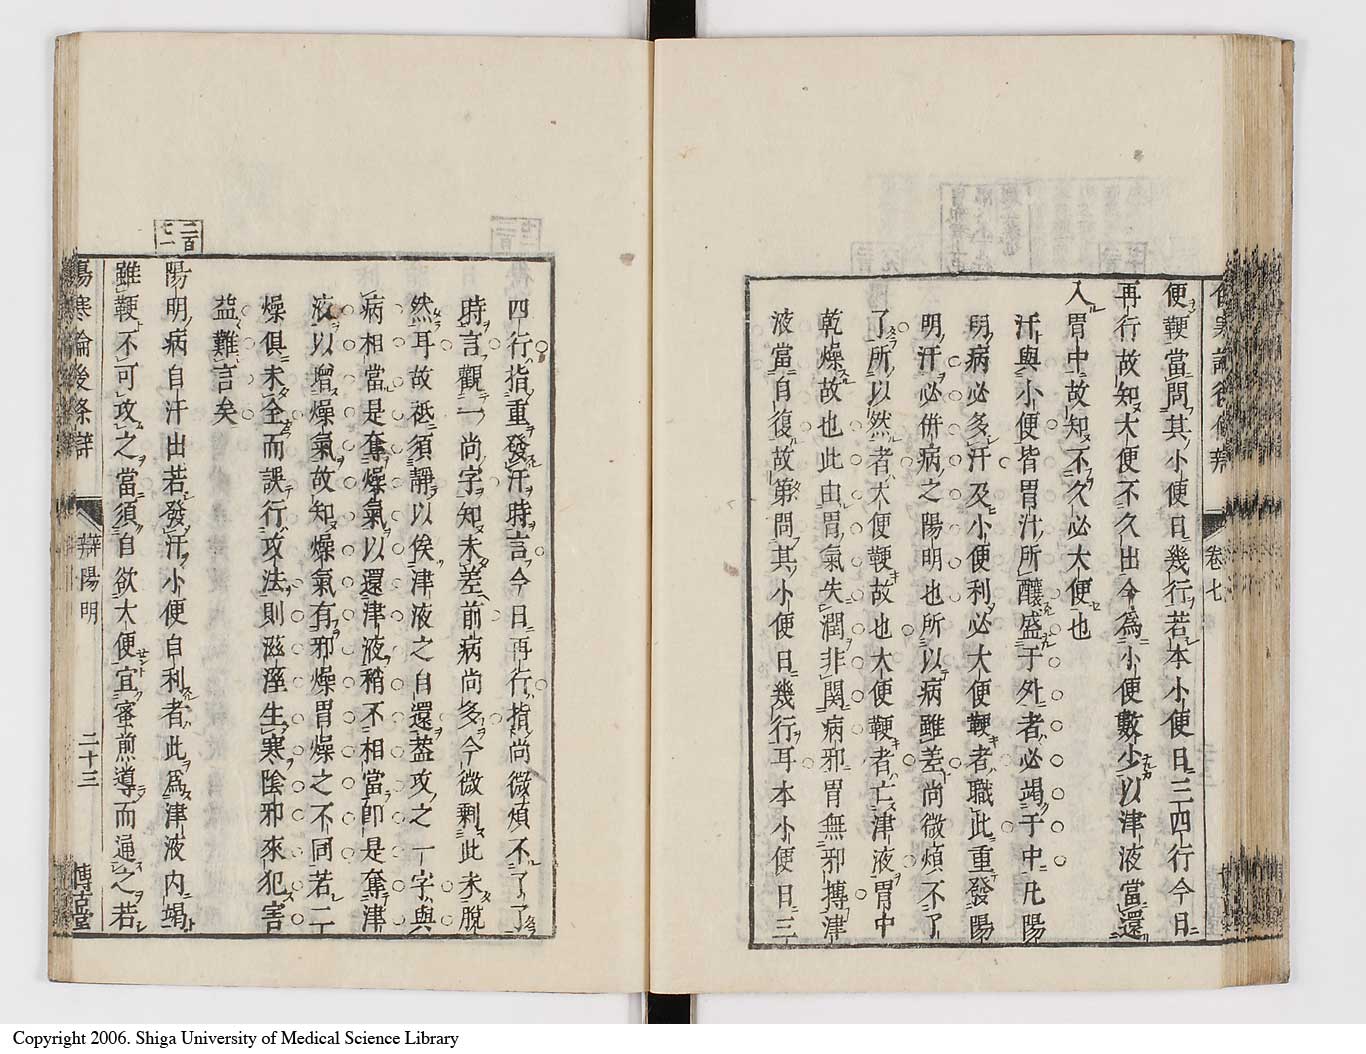 卷七
便鞕當問其小便日幾行若本小便日三四行今日
再行故知大便不久出今爲小便數少以津液當還
入胃中故知不久必大便也
汗與小便皆胃汁所釀盛于外者必竭于中凡陽
明病必多汗及小便利必大便鞕者職此重發陽
明汗必併病之陽明也所以病雖差尚微煩不了
了所以然者大便鞕故也大便鞕者亡津液胃中
乾燥故也此由胃氣失潤非關病邪胃無邪搏津
液當自復故第問其小便日幾行耳本小便日三
四行指重發汗時言今日再行指尚微煩不了了
時言觀一尚字知未差前病尚多今微剩此未脫
然耳故祇須靜以俟津液之自還葢攻之一字與
病相當是奪燥氣以還津液稍不相當卽是奪津
液以增燥氣故知燥氣有邪燥胃燥之不同若二
燥俱未全而誤行攻法則滋溼生寒陰邪來犯害
益難言矣
二百
陽明病自汗出若發汗小便自利者此爲津液內竭
雖鞕不可攻之當須自欲大便宜蜜煎導而通之若
傷寒論後條辯
辯陽明
二十三
博古堂
Copyright 2006. Shiga University of Medical Science Library